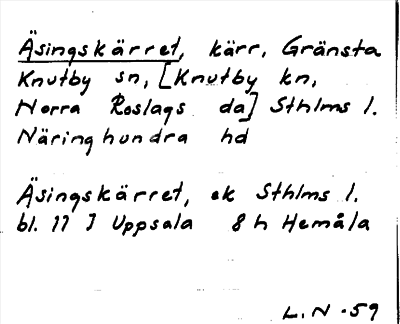 Äsingskärret, kärr, Gränsta
Knutby sn, [Knutby kn,
Norra Roslags da] Sthlms l.
Näringhundra hd
Äsingskärret, ek Sthlms l.
bl. 11 I Uppsala 8 h Hemåla
L.N -59